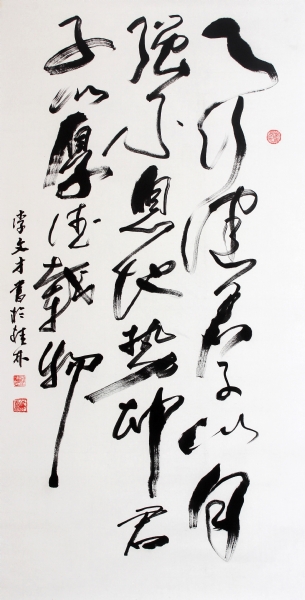 天行健君子以自
强不息地势坤君
子以厚德载物
李文才书于桂林